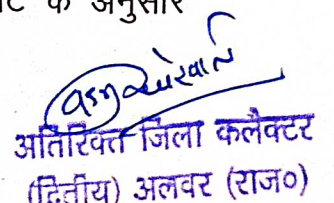 के अनुसार
अतिरिक्त जिला कलैक्टर
(द्वितीय) अलवर (राज०)